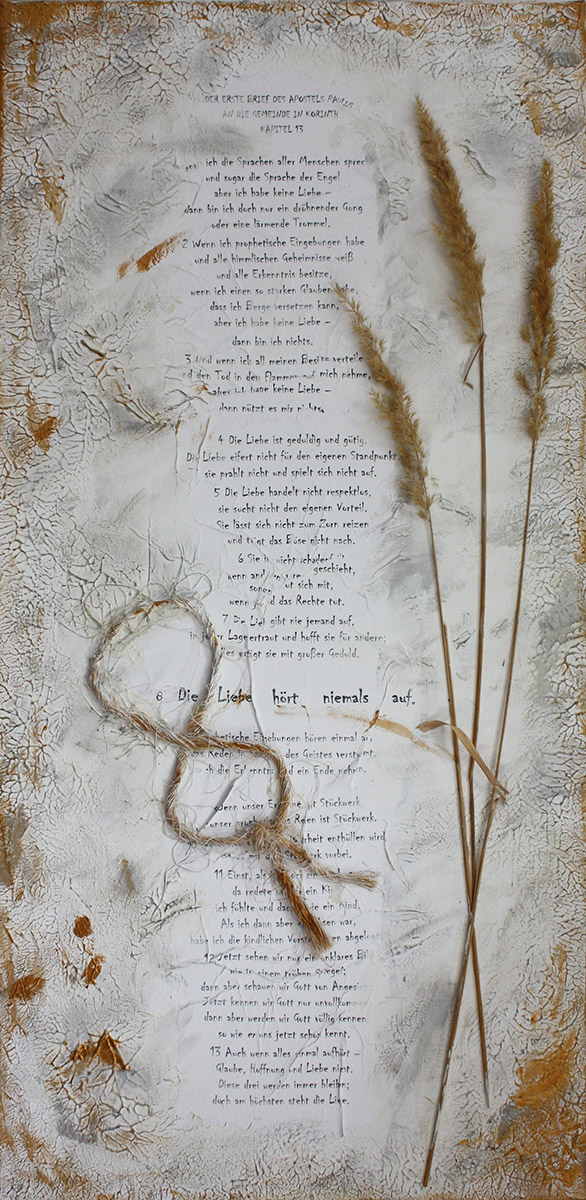 DER ERSTE BRIEF DES APOSTELS PAULUS
AN DIE GEMEINDE IN KORINTH
KAPITEL 13
ich die Sprachen aller Menschen sprech
und sogar die Sprache der Engel
aber ich habe keine Liebe –
dann bin ich doch nur ein dröhnender Gong
oder eine lärmende Trommel.
2 Wenn ich prophetische Eingebungen habe
und alle himmlischen Geheimnisse weiß
und alle Erkenntnis besitze,
wenn ich einen so starken Glauben habe,
dass ich Berge versetzen kann,
aber ich habe keine Liebe –
dann bin ich nichts.
3 Und wenn ich all meinen Besitz verteile
den Tod in den Flammen auf mich nehme,
aber ich habe keine Liebe –
dann nützt es mir nichts.
4 Die Liebe ist geduldig und gütig.
Die Liebe eifert nicht für den eigenen Standpunkt
sie prahlt nicht und spielt sich nicht auf.
5 Die Liebe handelt nicht respektlos,
sie sucht nicht den eigenen Vorteil.
Sie lässt sich nicht zum Zorn reizen
und trägt das Böse nicht nach.
6 Sie ist nicht
wenn geschieht,
sich mit,
wenn das Rechte tut.
7 Die gibt nie jemand auf,
in jeder vertraut und hofft sie für andere;
erträgt sie mit großer Geduld.
8 Die Liebe hört niemals auf.
Eingebungen hören einmal auf,
das Reden in des Geistes verstummt,
die ein Ende nehmen.
Wenn unser ist Stückwerk.
unser Reden ist Stückwerk.
enthüllen wird,
vorbei.
11 Einst, als
da redete ein
ich fühlte und wie ein Kind,
Als ich dann aber war,
habe ich die kindlichen abgelegt
12 Jetzt sehen wir nur ein unklares
wie in einem trüben Spiegel;
dann aber schauen wir Gott von
Jetzt kennen wir Gott nur unvollkommen
dann aber werden wir Gott völlig kennen,
so wie er uns jetzt schon kennt.
13 Auch wenn alles einmal aufhört –
Glaube, Hoffnung und Liebe nicht.
Diese drei werden immer bleiben;
doch am höchsten steht die